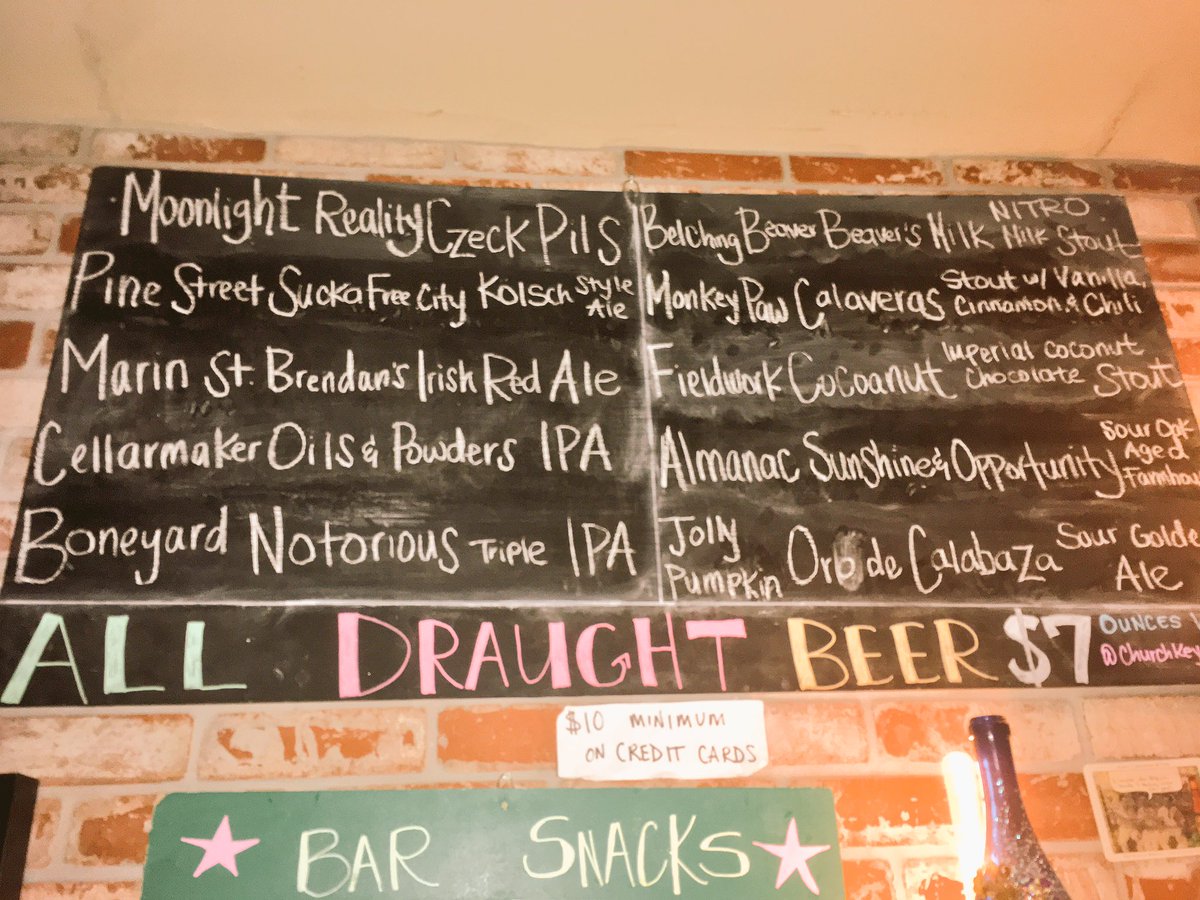 Moonlight Reality Czeck Pils
Pine Street Sucka Free City Kölsch Style Ale
Marin St. Brendan's Irish Red Ale
Cellarmaker Oils & Powders IPA
Boneyard Notorious Triple IPA
Belching Beaver Beaver's Milk NITRO Milk Stout
Monkey Paw Calaveras Stout w/ Vanilla, Cinnamon & Chili
Fieldwork Cocoanut Imperial Coconut Chocolate Stout
Almanac Sunshine & Opportunity Sour Oak Aged
Jolly Pumpkin Oro de Calabaza Sour Golde Ale
ALL DRAUGHT BEER $7
OUNCES
@ChurchKey
$10 MINIMUM
ON CREDIT CARDS
BAR SNACKS